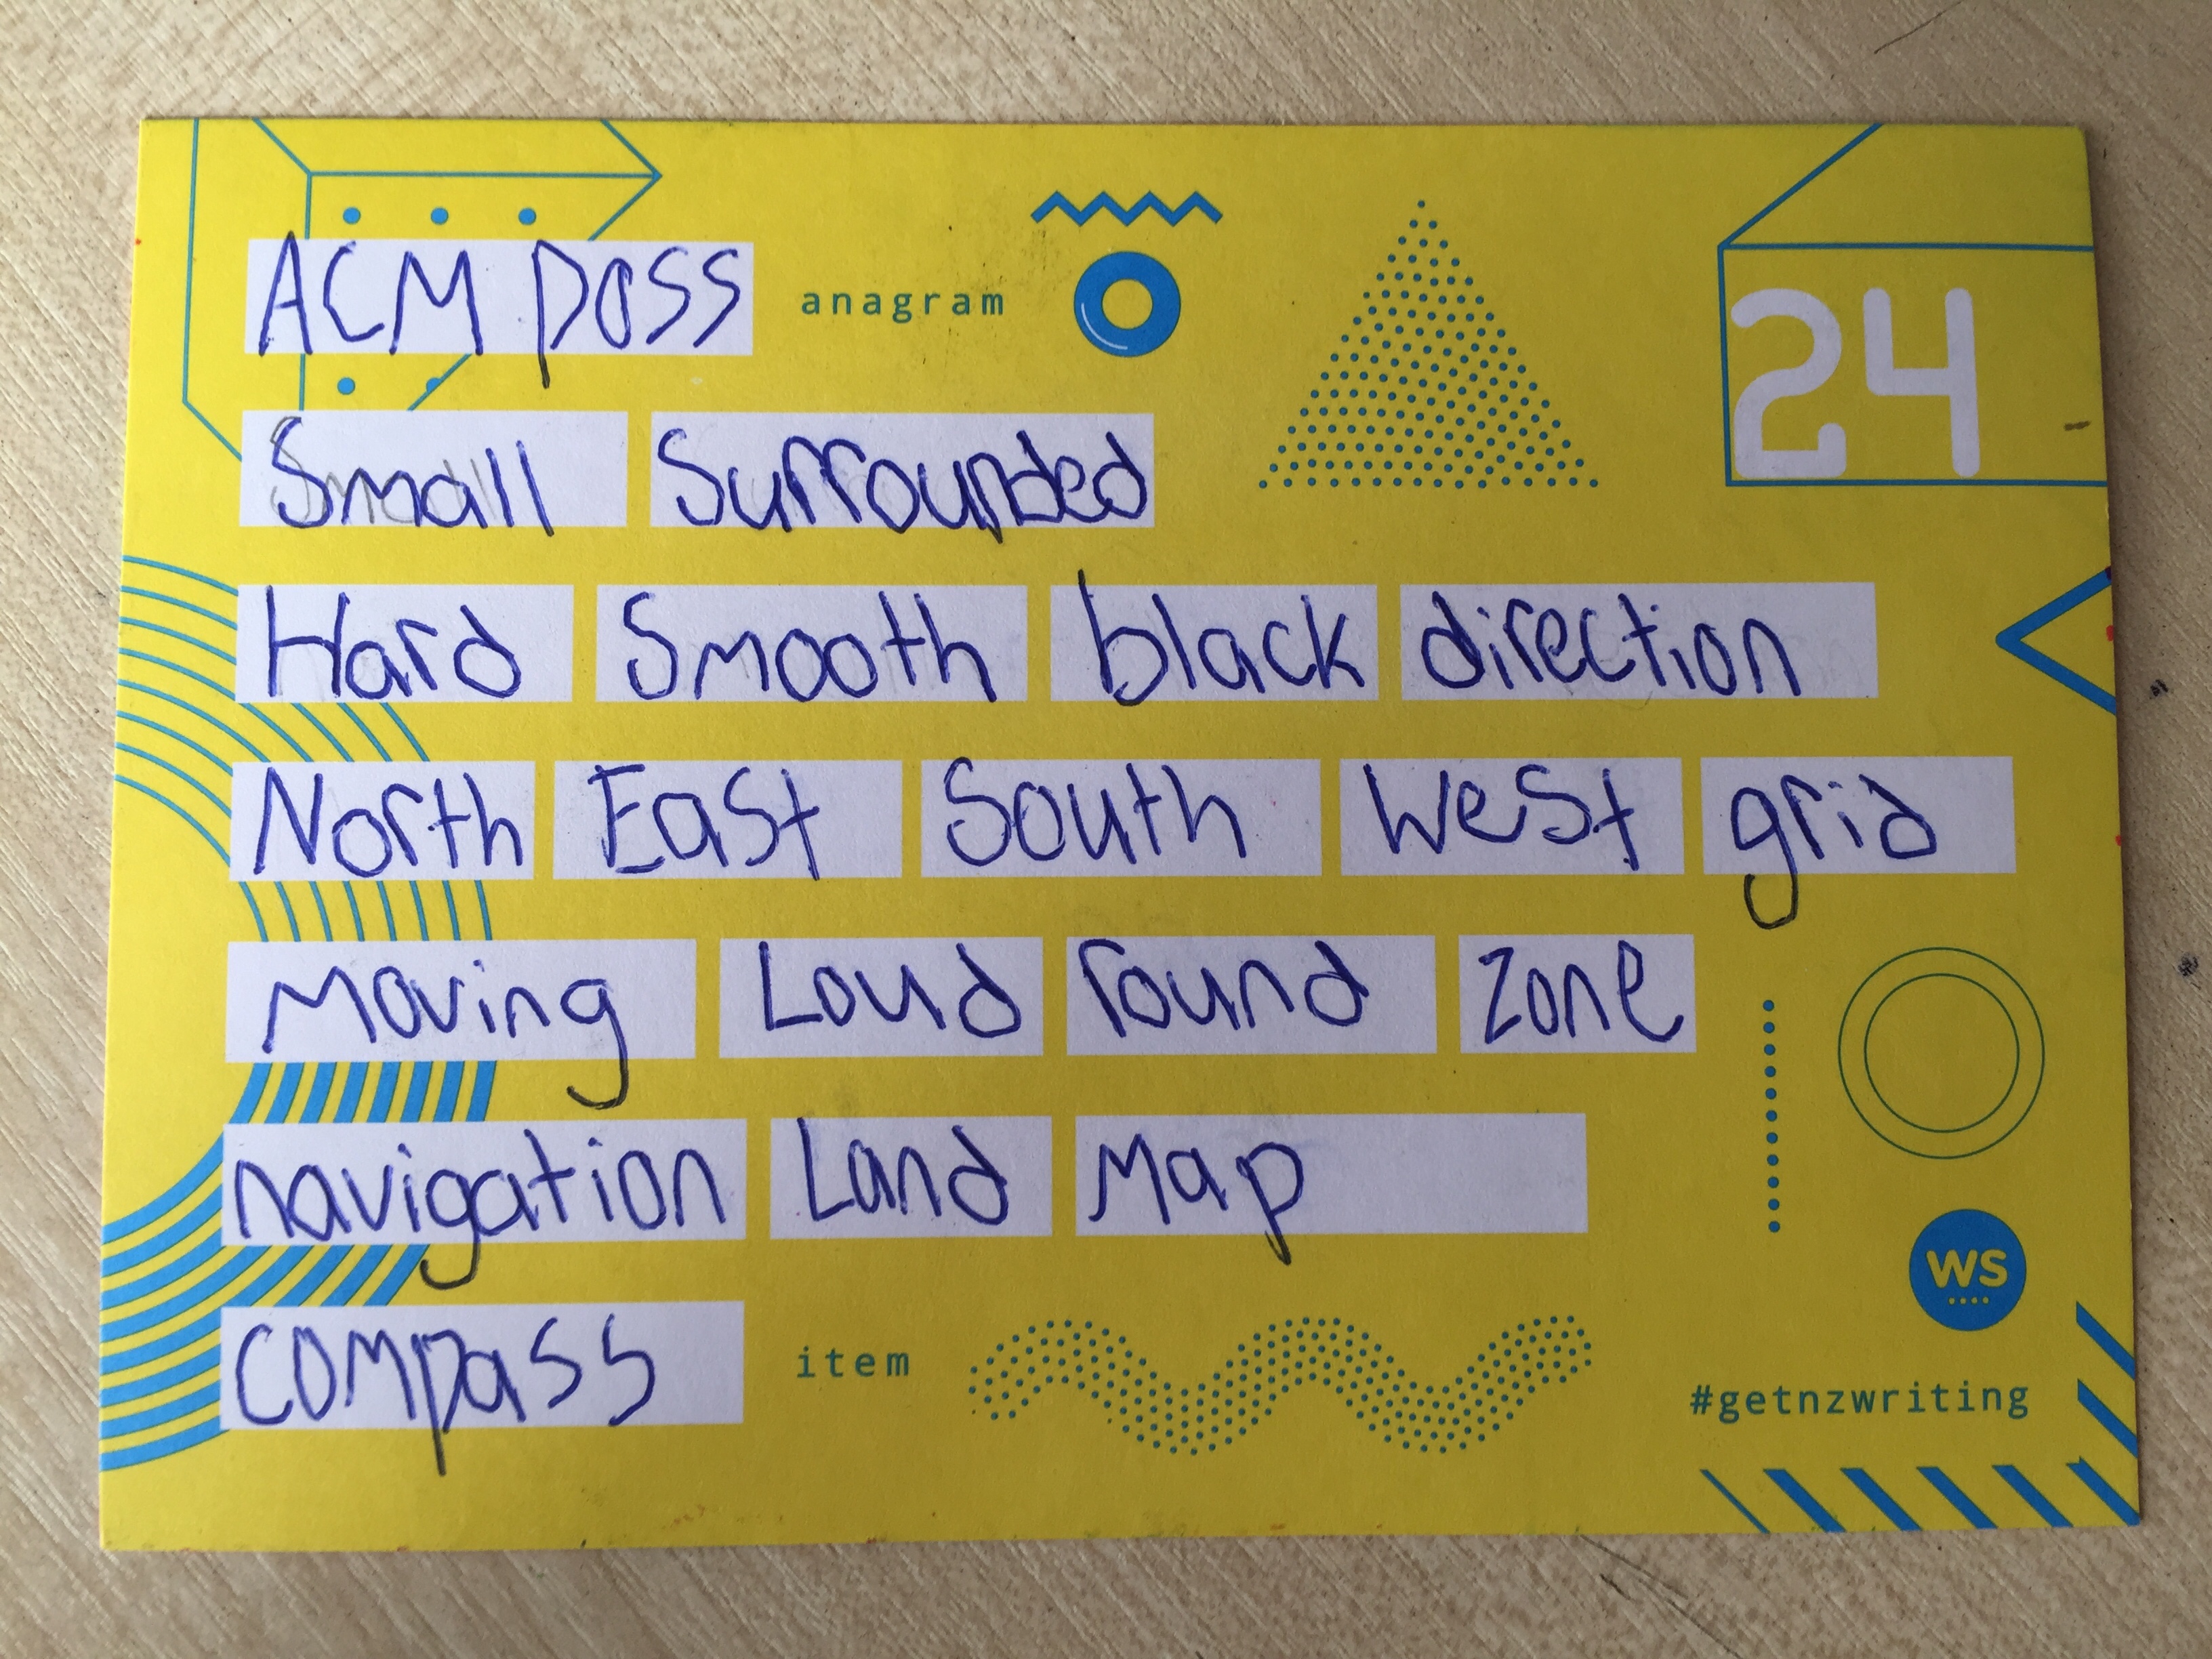 ACM poss anagram
24
Small Surrounded
Hard Smooth black direction
North East South West grid
Moving Loud round zone
navigation Land Map
WS
compass item
#getnzwriting